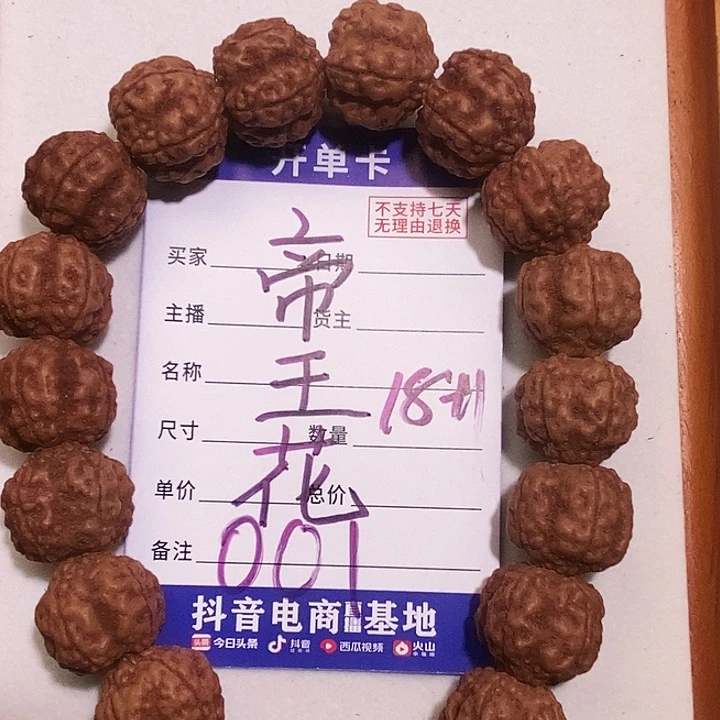 开单卡
不支持七天
无理由退换
买家 日期
主播 货主
名称
尺寸 数量
单价 总价
备注
帝王花
18廾
001
抖音电商直播基地
头条 今日头条 抖音 西瓜视频 火山